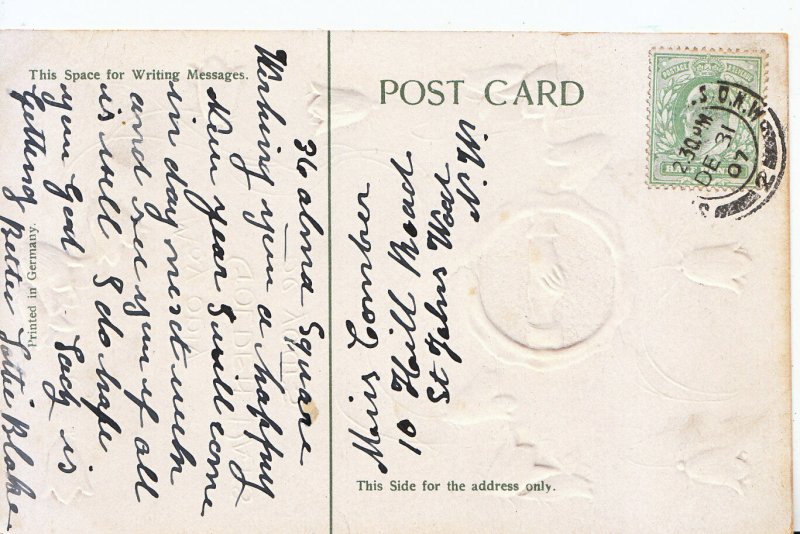 This Space for Writing Messages.
36 alma Square
Wishing you a happy
New year I will come
in day next week
and see you if all
is well I do hope
your God Lady is
Getting Better Lottie Blake
Printed in Germany.
POST CARD
S.O.N.W
2.30PM
DE 31
07
2
POSTAGE REVENUE
Miss
10 Hill Road
St Johns Wood
N.W.
This Side for the address only.